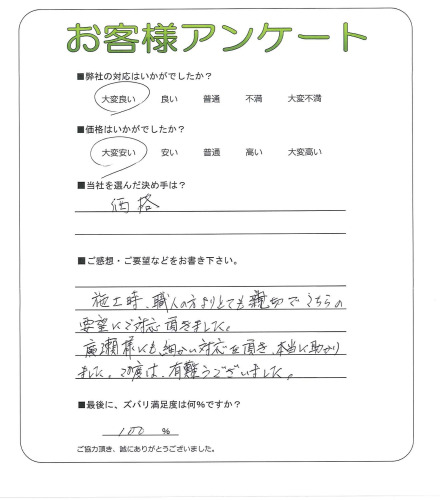 お客様アンケート
■弊社の対応はいかがでしたか？
大変良い 良い 普通 不満 大変不満
■価格はいかがでしたか？
大変安い 安い 普通 高い 大変高い
■当社を選んだ決め手は？
価格
■ご感想・ご要望などをお書き下さい。
施工時、職人の方よりとても親切でこちらの
要望にご対応頂きました。
廣瀬様にも、細かい対応を頂き、本当に助かり
ました。この度は、有難うございました。
■最後に、ズバリ満足度は何%ですか？
100 %
ご協力頂き、誠にありがとうございました。